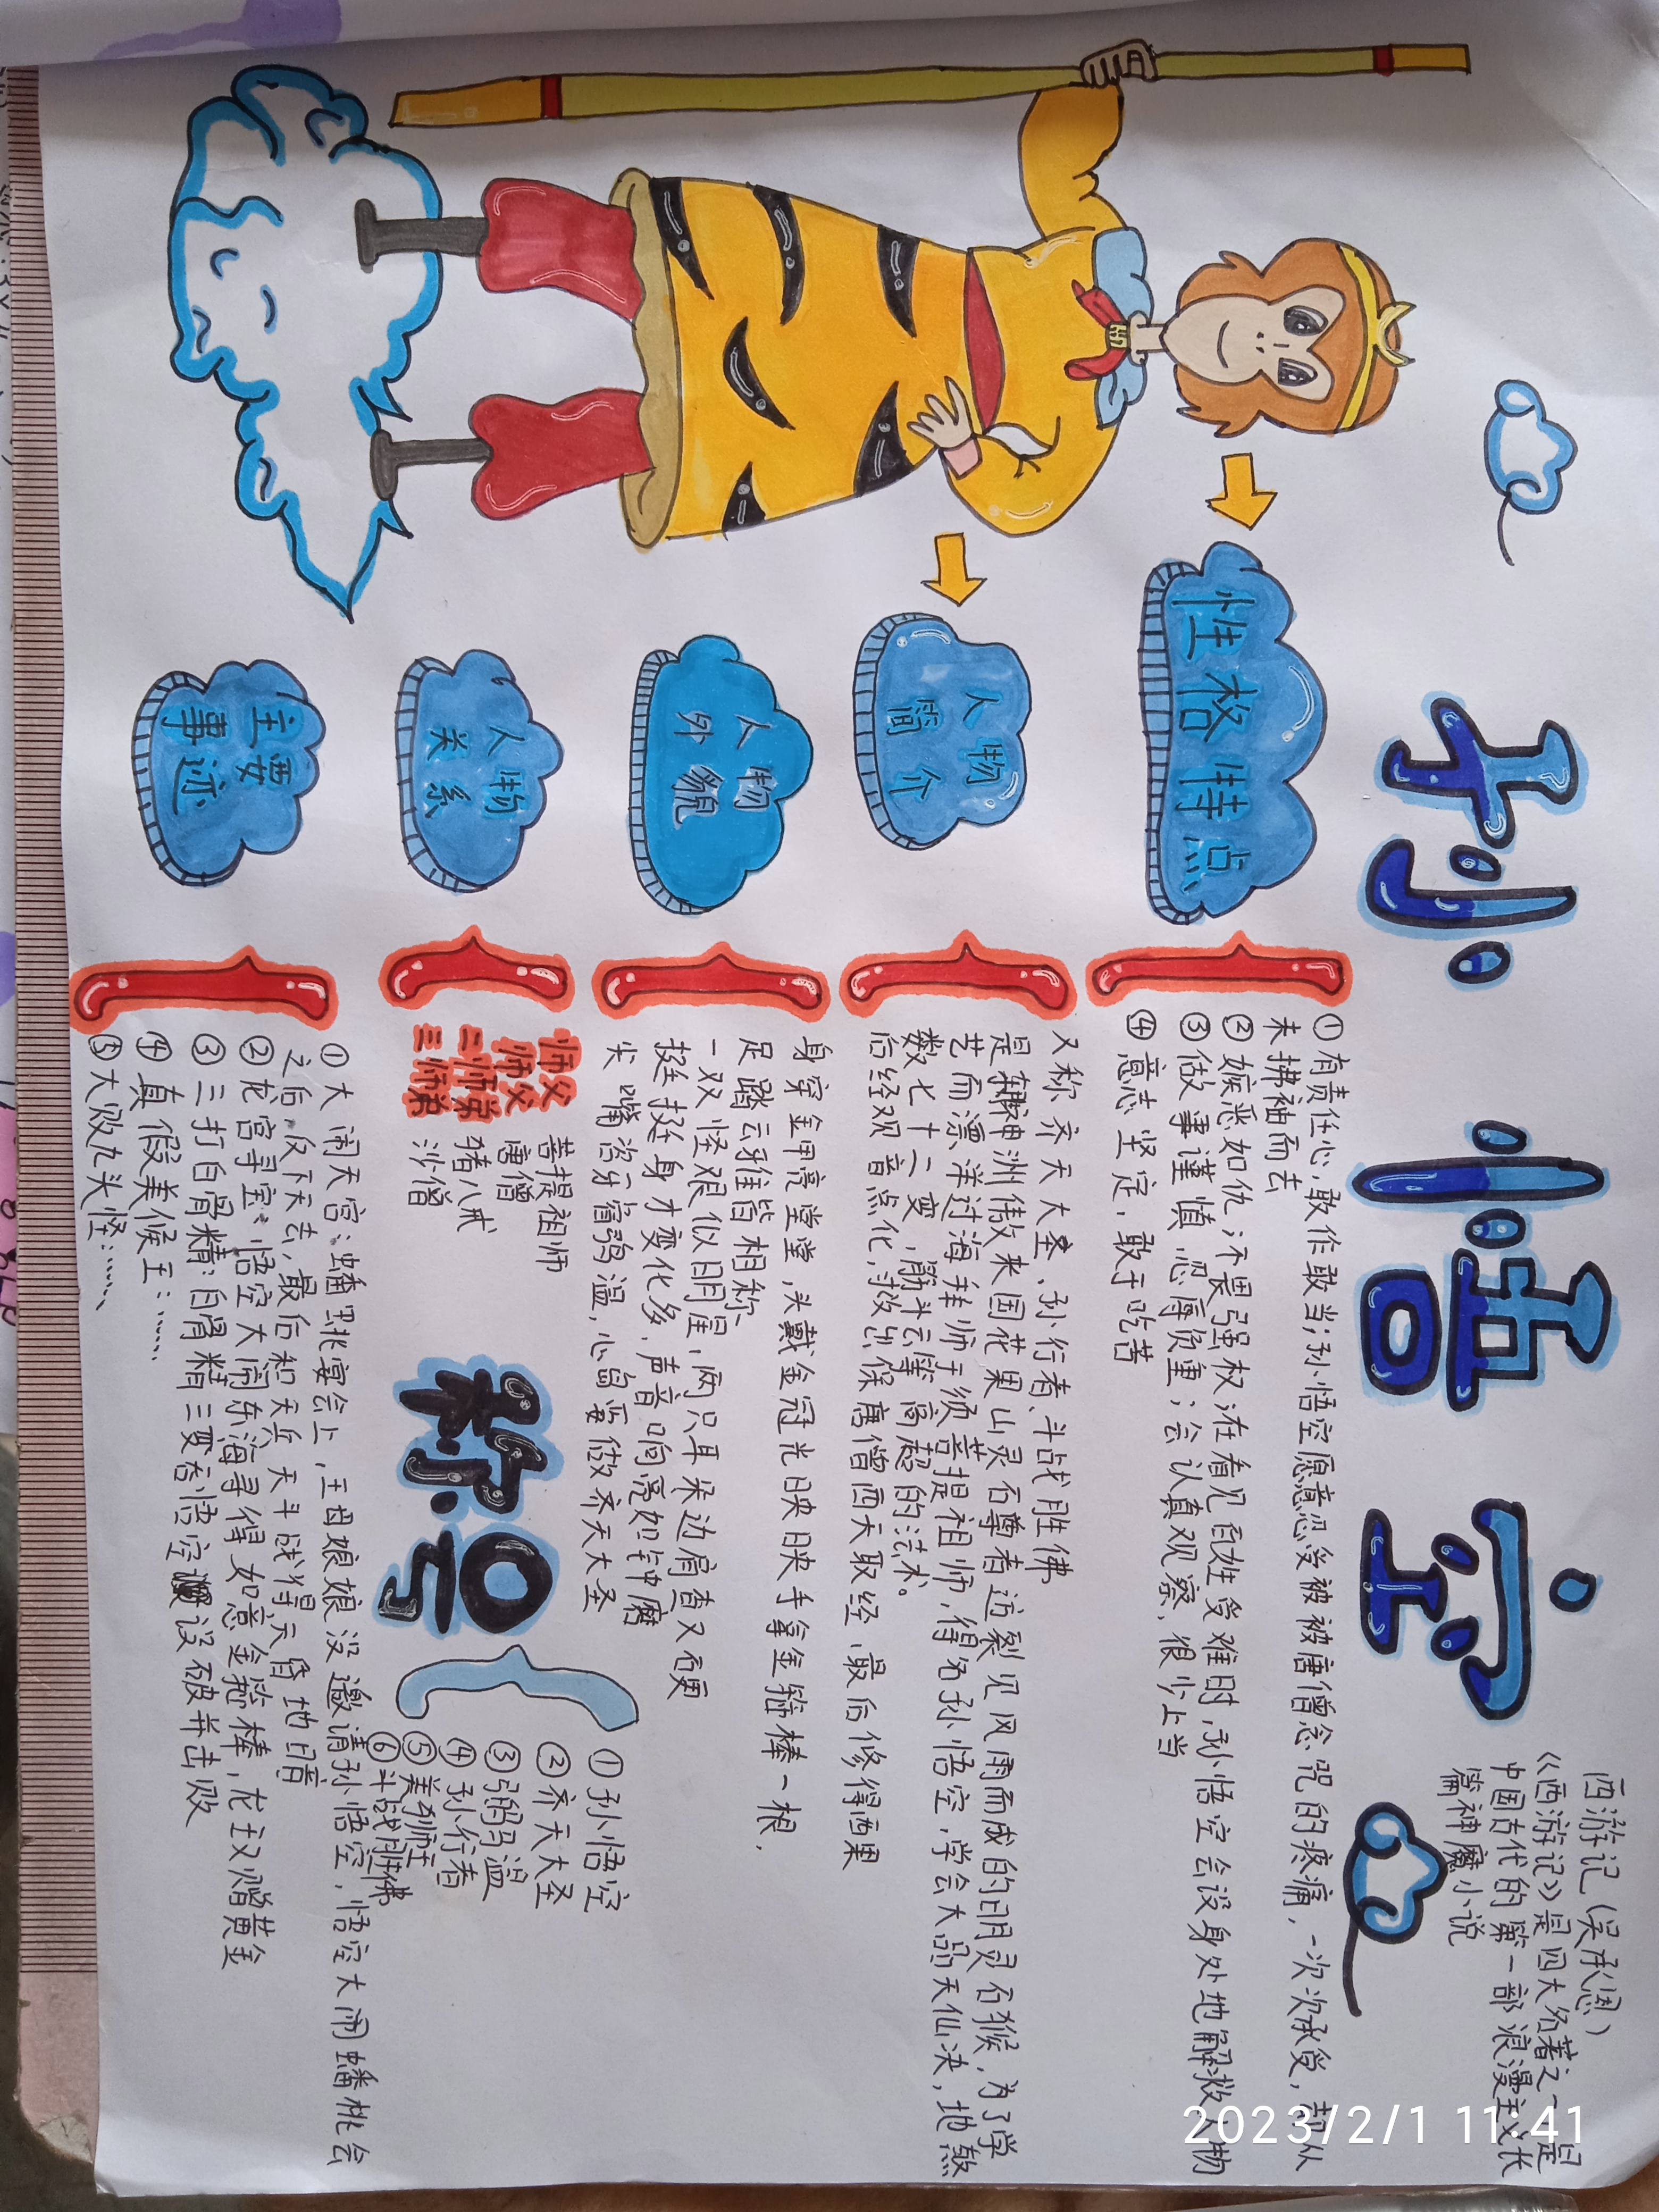 孙悟空
西游记(吴承恩)
《西游记》是四大名著之一,是
中国古代的第一部浪漫主义长
篇神魔小说
性格特点
①有责任心,敢作敢当;孙悟空愿意忍受被被唐僧念咒的疼痛,一次次承受,却从
未拂袖而去
②嫉恶如仇,不畏强权;在看见百姓受难时,孙悟空会设身处地解救人物
③做事谨慎,忍辱负重;会认真观察,很少上当
④意志坚定,敢于吃苦
人物
简介
又称齐天大圣、孙行者、斗战胜佛
是东胜神洲傲来国花果山灵石尊者迸裂见风雨而成的明灵石猴,为了学
艺而漂洋过海拜师于须菩提祖师,得名孙悟空,学会大品天仙决,地煞
数七十二变,筋斗云等高超的法术。
后经观音点化,救出保唐僧西天取经,最后修得西果
人物
外貌
身穿金甲亮堂堂,头戴金冠光映映手拿金箍棒一根,
足踏云鞋皆相称、
一双怪眼似明星,两只耳朵边肩查又硬
挺挺身才变化多,声音响亮如钟磨
尖嘴沿牙弼马温,心高要做齐天大圣
人物
关系
师父 菩提祖师
师父 唐僧
二师弟 猪八戒
三师弟 沙僧
称号
①孙悟空
②齐天大圣
③弼马温
④孙行者
⑤美猴王
⑥斗战胜佛
主要
事迹
①大闹天宫:蟠桃宴会上,王母娘娘没邀请孙悟空,悟空大闹蟠桃会
之后反下天去,最后和天兵天斗战得天昏地暗
②龙宫寻宝:悟空大闹东海寻得如意金箍棒,龙王又赠黄金
③三打白骨精:白骨精三变吞悟空识破并击败
④真假美候王:……
⑤大败九头怪:……
2023/2/1 11:41